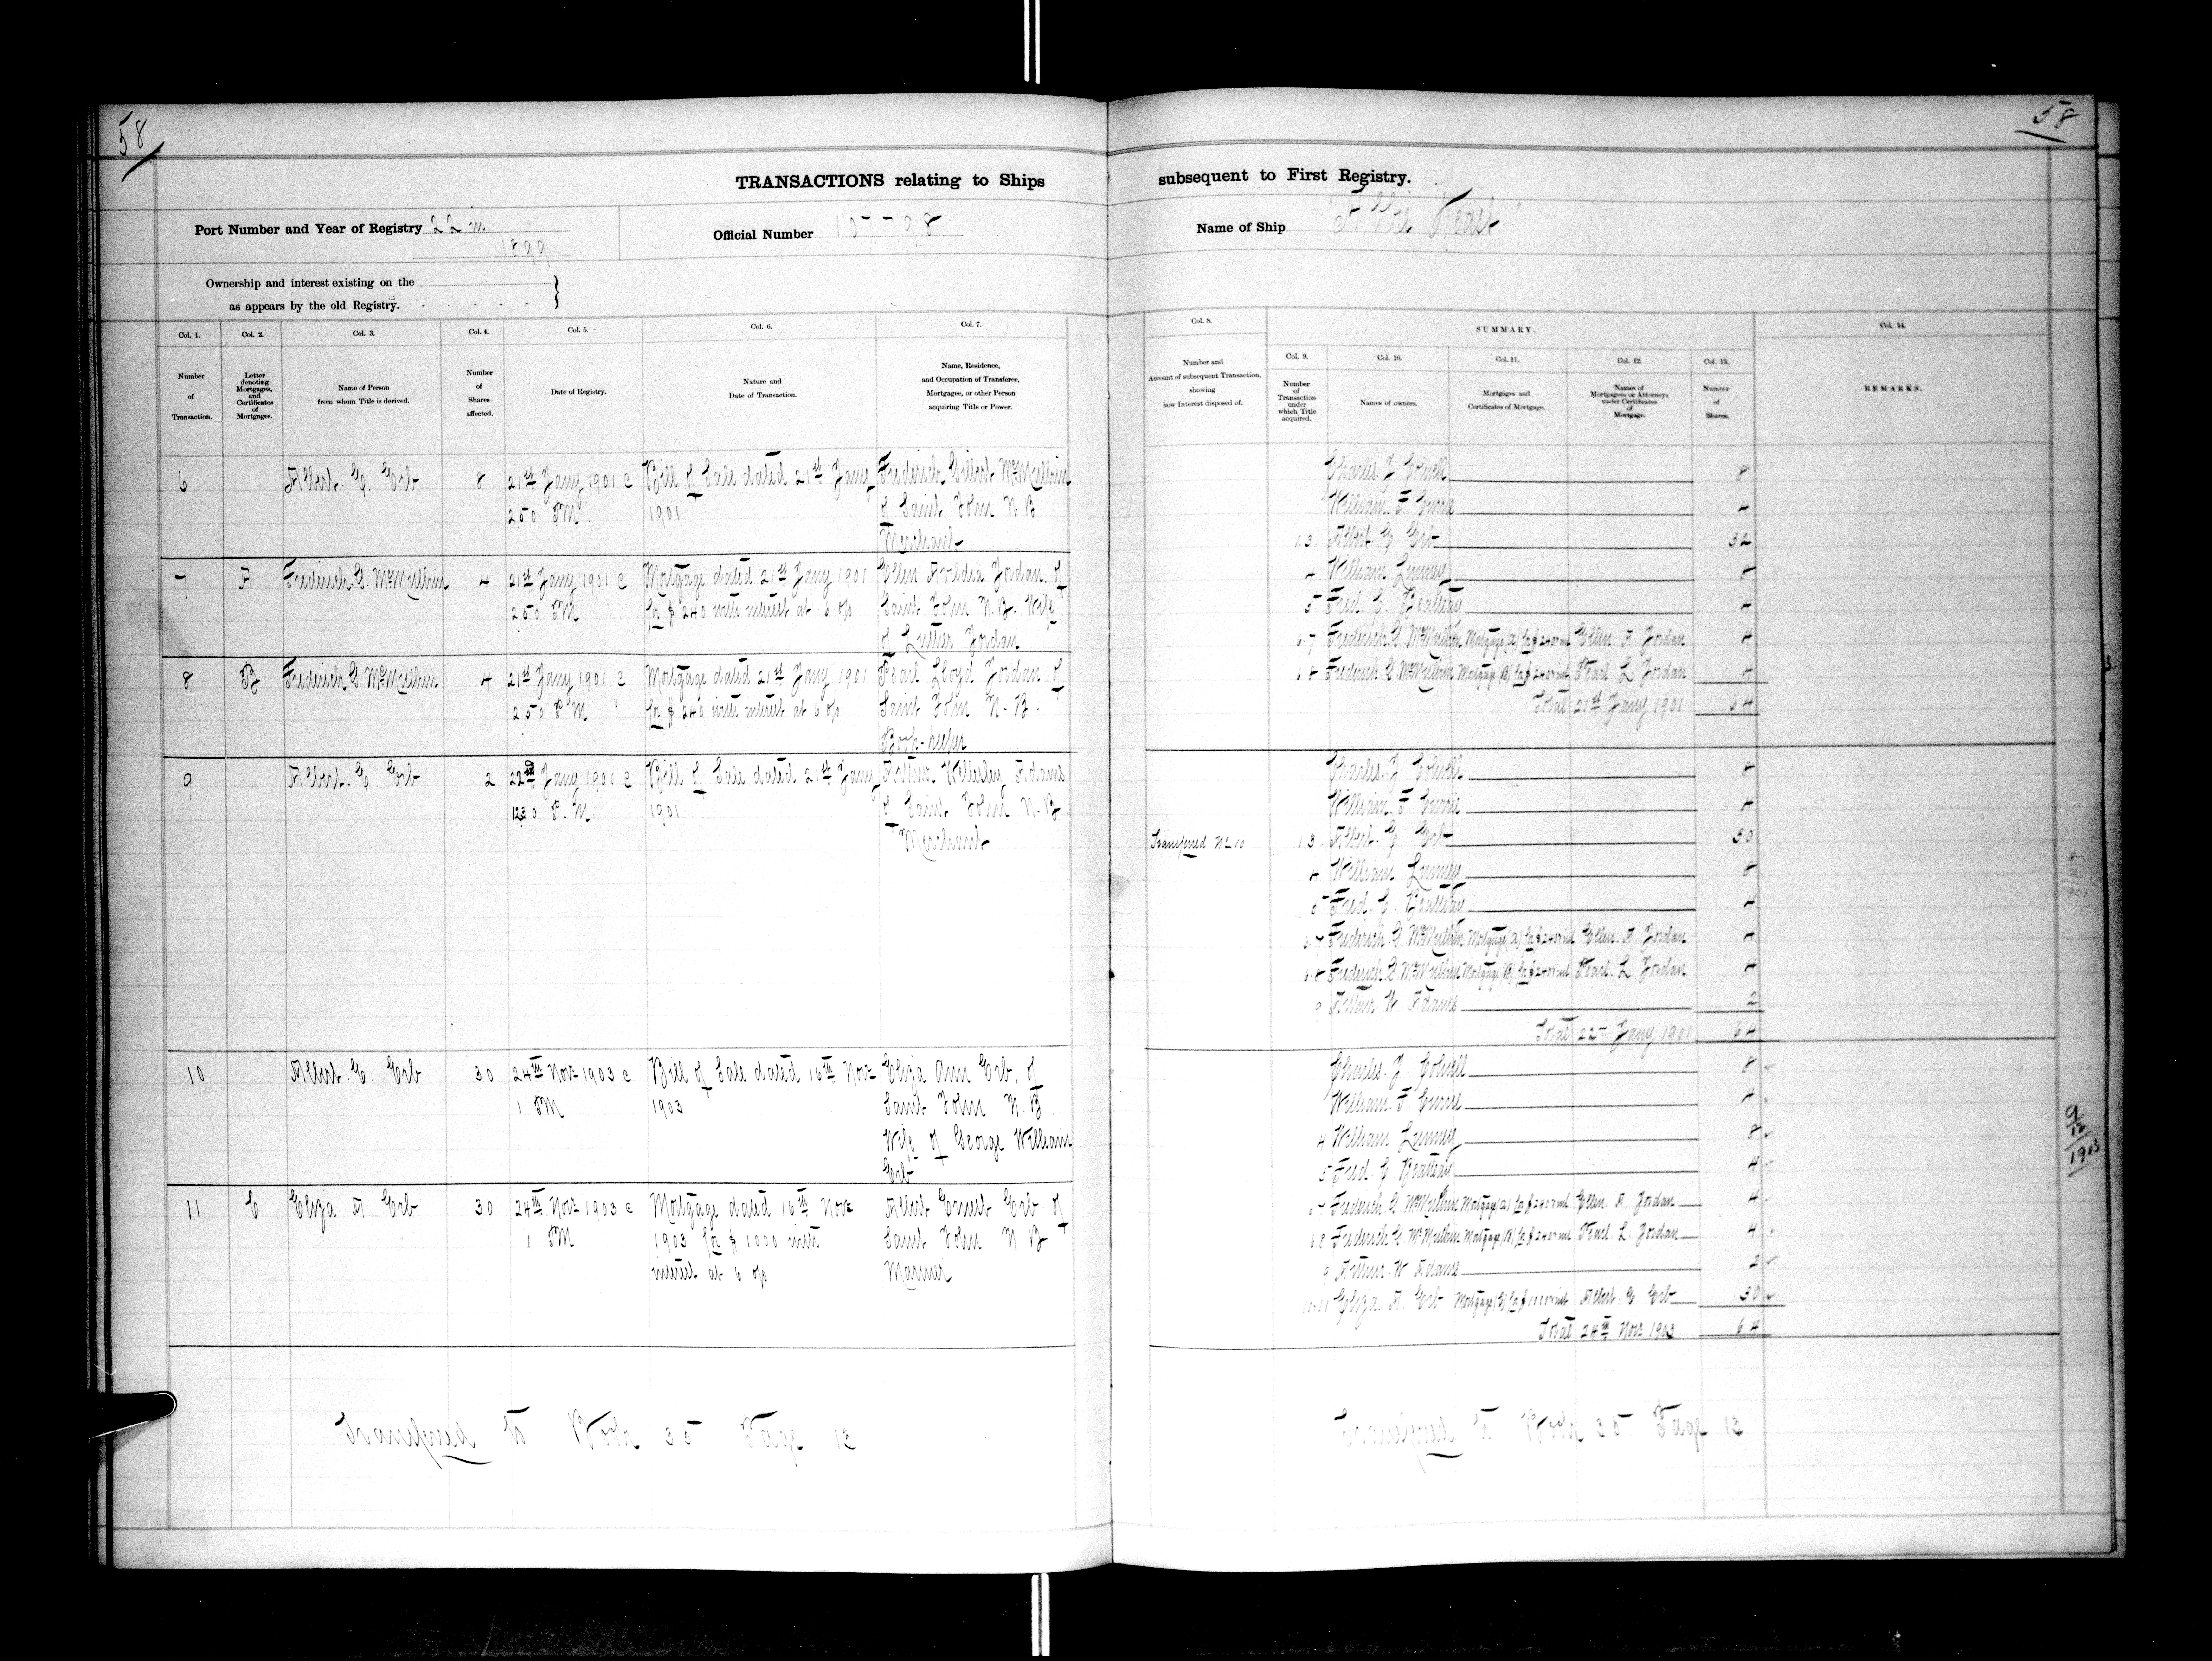 58
58
TRANSACTIONS relating to Ships subsequent to First Registry.
Port Number and Year of Registry 22
1899
Official Number
Name of Ship
Ownership and interest existing on the
as appears by the old Registry.
Col. 1.
Number
of
Transaction.
Col. 2.
Letter
denoting
Mortgages,
and
Certificates
of
Mortgages.
Col. 3.
Name of Person
from whom Title is derived.
Col. 4.
Number
of
Shares
affected.
Col. 5.
Date of Registry.
Col. 6.
Nature and
Date of Transaction.
Col. 7.
Name, Residence,
and Occupation of Transferee,
Mortgagee, or other Person
acquiring Title or Power.
Col. 8.
Number and
Account of subsequent Transaction,
showing
how Interest disposed of.
SUMMARY.
Col. 9.
Number
of
Transaction
under
which Title
acquired.
Col. 10.
Names of owners.
Col. 11.
Mortgages and
Certificates of Mortgage.
Col. 12.
Names of
Mortgagees or Attorneys
under Certificates
of
Mortgage.
Col. 13.
Number
of
Shares.
Col. 14.
REMARKS.
6 Albert E. Erb 8 21st Jany 1901 Bill of Sale dated 21st Jany
2.50 PM 1901
of Saint John N.B
Merchant
7 A 4 21st Jany 1901 Mortgage dated 21st Jany 1901 Jordan of
2.50 PM for $240 with interest at 6 o/o Saint John N.B. Wife
of Luther Jordan
8 B 4 21st Jany 1901 Mortgage dated 21st Jany 1901 Pearl Lloyd Jordan of
2.50 P.M for $240 with interest at 6 o/o Saint John N.B.
Book-keeper
9 Albert E. Erb 2 22nd Jany 1901 Bill of Sale dated 21st Jany Arthur Wellesley Adams
12.30 P.M. 1901 of Saint John N.B.
Merchant
10 Albert E. Erb 30 24th Novr 1903 Bill of Sale dated 16th Novr Eliza Ann Erb of
1 PM 1903 Saint John N.B
Wife of George William
Erb
11 C Eliza A Erb 30 24th Novr 1903 Mortgage dated 16th Novr Albert Ernest Erb of
1 PM 1903 for $1000 with Saint John N B
interest at 6 o/o Mariner
Transferred to Book 35 Page 13
Charles J. Colwell 8
William F. Currie 4
1.3 Albert E Erb 32
4 William Lunney 8
5 Fred. E. Beatteay 4
6.7 Ellen A Jordan 4
6.8 Pearl L Jordan 4
Total 21st Jany 1901 64
Charles J. Colwell 8
William F. Currie 4
Transferred No 10 1.3 Albert E Erb 30
4 William Lunney 8
5 Fred. E. Beatteay 4
6.7 Ellen A. Jordan 4
6.8 Pearl L Jordan 4
9 Arthur W. Adams 2
Total 22nd Jany 1901 64
Charles J. Colwell 8
William F. Currie 4
4 William Lunney 8
5 Fred. E Beatteay 4
Ellen A. Jordan 4
6.8 Pearl L. Jordan 4
9 Arthur W Adams 2
Eliza A Erb Albert E Erb 30
Total 24th Novr 1903 64
Transferred to Book 35 Page 13